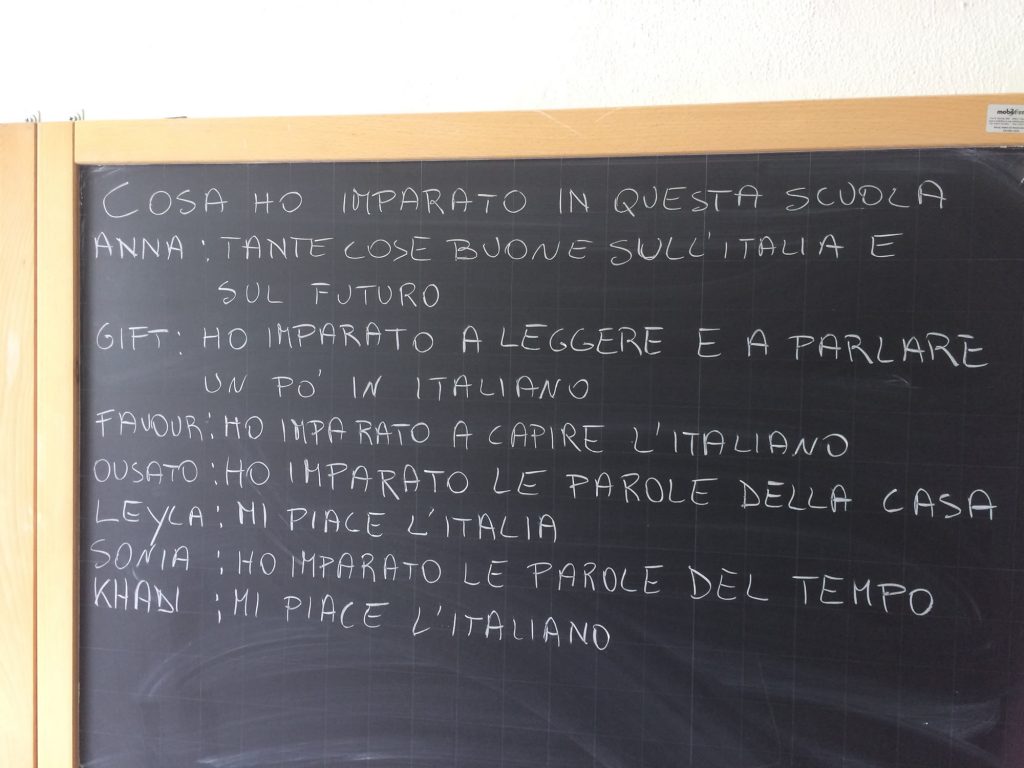 COSA HO IMPARATO IN QUESTA SCUOLA
ANNA : TANTE COSE BUONE SULL'ITALIA E
SUL FUTURO
GIFT : HO IMPARATO A LEGGERE E A PARLARE
UN PO' IN ITALIANO
FAVOUR : HO IMPARATO A CAPIRE L'ITALIANO
OUSATO : HO IMPARATO LE PAROLE DELLA CASA
LEYLA : MI PIACE L'ITALIA
SONIA : HO MPARATO LE PAROLE DEL TEMPO
KHADI : MI PIACE L'ITALIANO